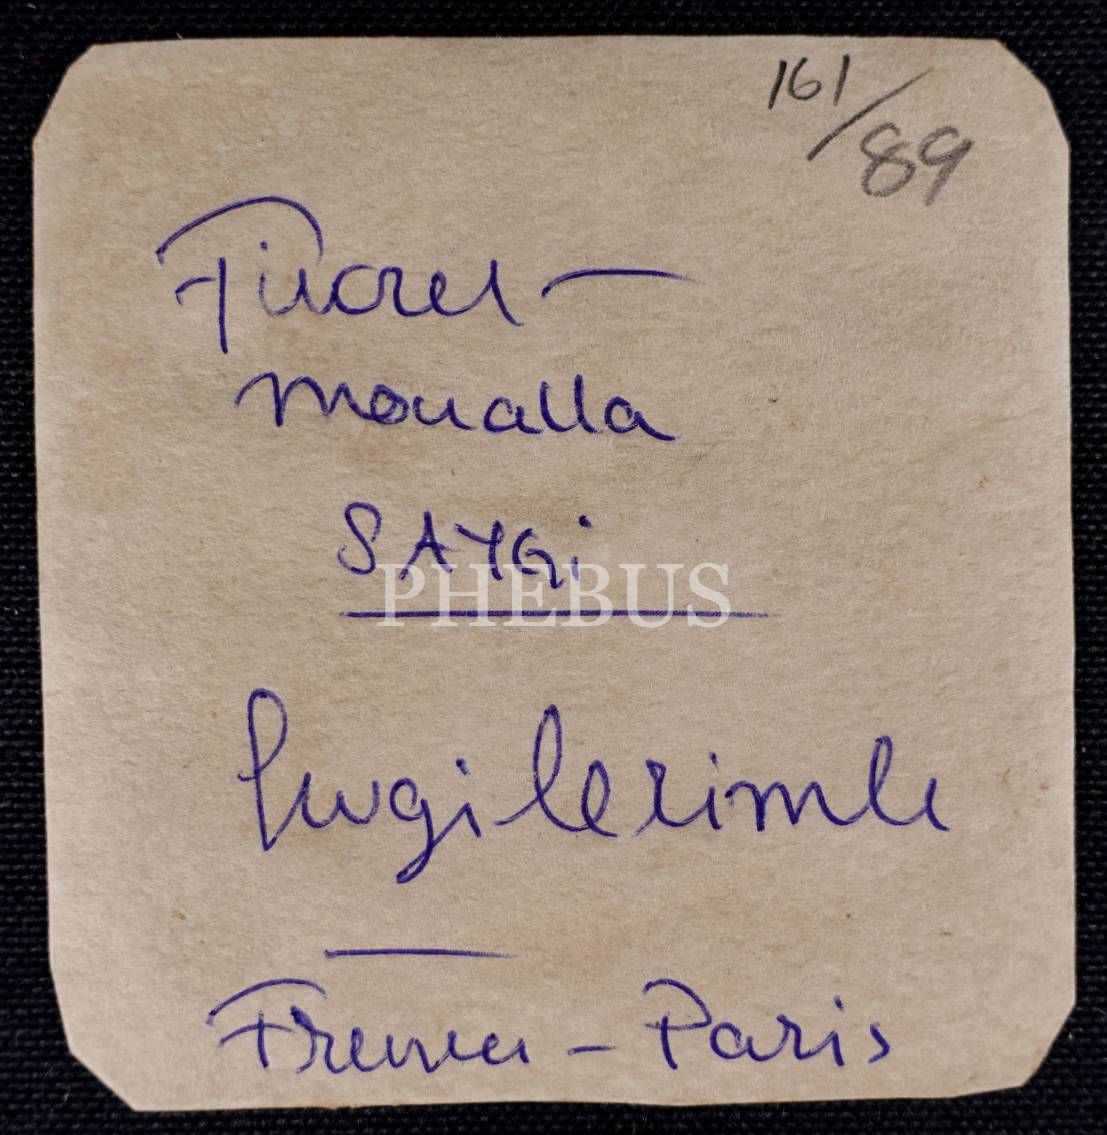 161/89
Fikret
Moualla
SAYGi
PHEBUS
Sevgilerimle
Paris